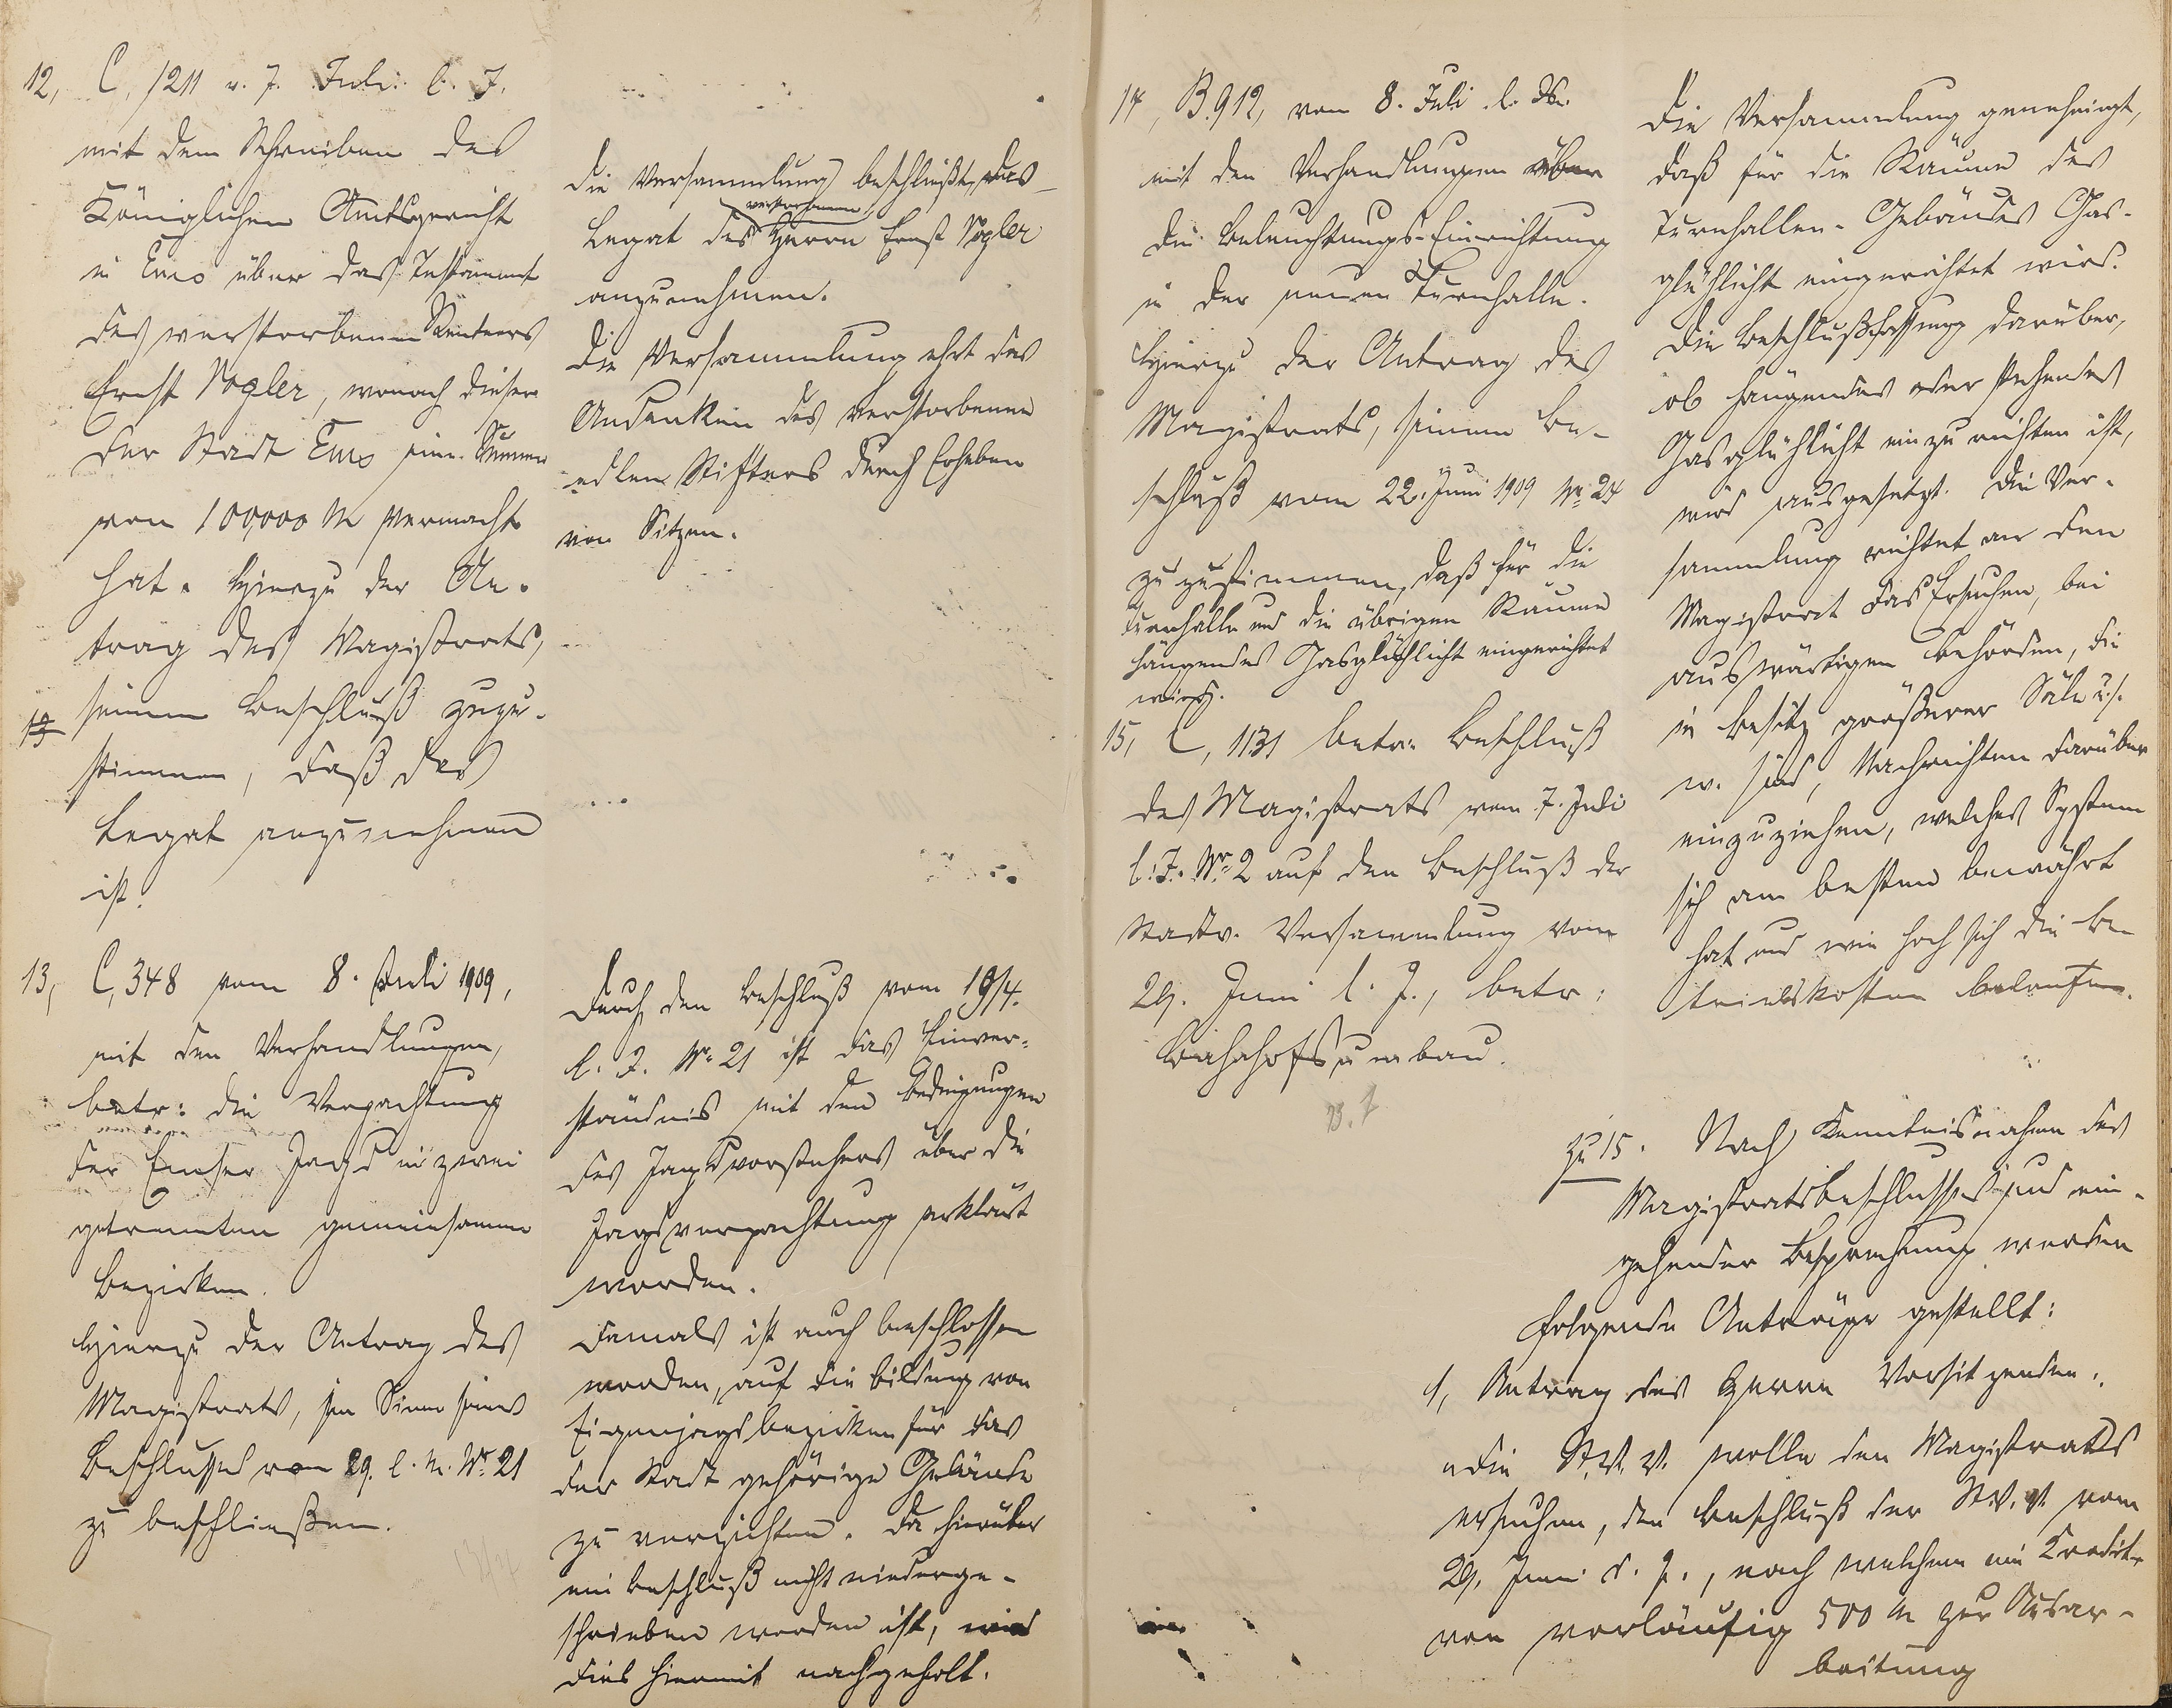 12, C, 1211 v. 7. Juli l. J.
mit dem Schreiben des
Königlichen Amtsgericht
in Ems über das Testament
des verstorbenen Rentners
Ernst Vogler, wonach dieser
der Stadt Ems eine Summe
von 100,000 M vermacht
hat. Hierzu der An-
trag des Magistrats,
seinem Beschluß zuzu-
13
stimmen, daß das
Legat anzunehmen
ist.
13, C, 348 vom 8. Juli 1909,
mit den Verhandlungen,
betr: die Verpachtung
der Emser Jagd in zwei
getrennten gemeinsamen
Bezirken.
Hierzu der Antrag des
Magistrats, im Sinne seines
Beschlusses von 29. l. M. Nr. 21
zu beschließen.
Die Versammlung beschließt, das
verstorbenen
Legat des Herrn Ernst Vogler
anzunehmen.
Die Versammlung ehrt das
Andenken des verstorbenen
edlen Stifters durch Erheben
von Sitzen.
Durch den Beschluß vom 19/4.
l. J. Nr. 21 ist das Einver-
ständnis mit den Bedingungen
des Jagdvorstehers über die
Jagdverpachtung erklärt
worden.
Damals ist auch beschlossen
worden, auf die Bildung von
Eigenjagdbezirken für das
der Stadt gehörige Gelände
zu verzichten. Da hierüber
ein Beschluß nicht niederge-
schrieben worden ist, wird
dies hiermit nachgeholt.
14, B. 912, vom 8. Juli l. Js.
mit den Verhandlungen über
die Beleuchtungs-Einrichtung
in der neuen Turnhalle.
Hierzu der Antrag des
Magistrats, seinem Be-
schluß vom 22. Juni 1909 Nr. 24
zuzustimmen, daß für die
Turnhalle und die übrigen Räume
hängendes Gasglühlicht eingerichtet
wird.
15, C, 1131 betr: Beschluß
des Magistrats vom 7. Juli
l. J. Nr. 2 auf den Beschluß der
Stadtv. Versammlung vom
29. Juni l. J., betr:
Bahnhofsumbau.
Die Versammlung genehmigt,
daß für die Räume des
Turnhallen-Gebäudes Gas-
glühlicht eingerichtet wird.
Die Beschlußfassung darüber,
ob hängendes oder stehendes
Gasglühlicht einzurichten ist,
wird ausgesetzt. Die Ver-
sammlung richtet an den
Magistrat das Ersuchen, bei
auswärtigen Behörden, die
in Besitz größerer Säle u. s.
w. sind, Nachrichten darüber
einzuziehen, welches System
sich am besten bewährt
hat und wie hoch sich die Be-
triebskosten belaufen.
zu 15. Nach Kenntnisnahme des
Magistratsbeschlusses und ein-
gehender Besprechung werden
folgende Anträge gestellt:
1, Antrag des Herrn Vorsitzenden:
"Die St. V. V. wolle den Magistrat
ersuchen, den Beschluß der St. V. V. vom
29. Juni d. J., nach welchem ein Kredit
von vorläufig 500 M zur Ausar-
beitung